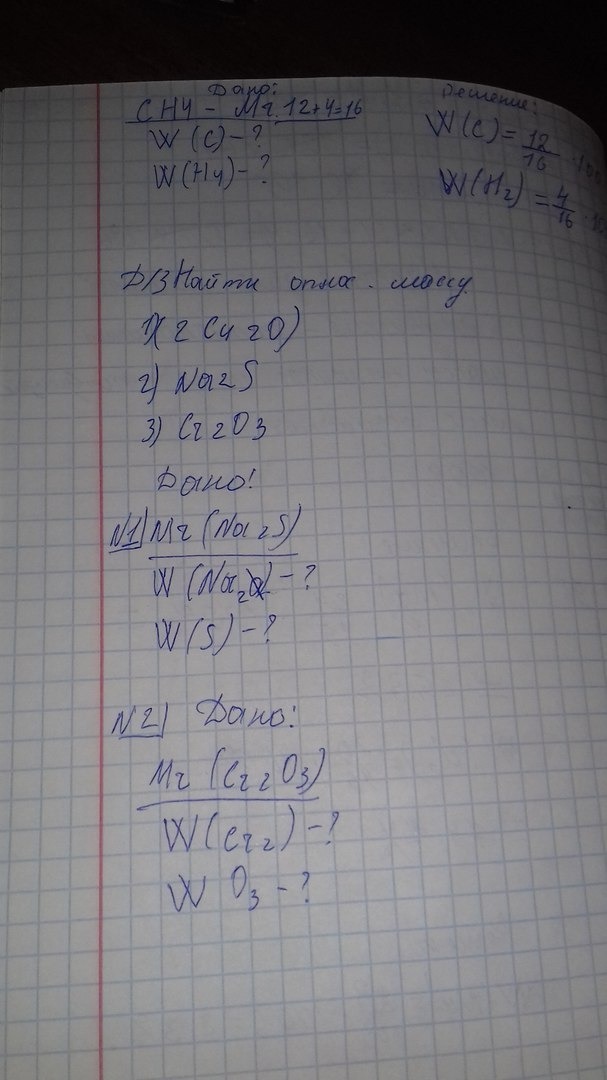 Дано:
CH4 - Mr 12+4=16
W (C) - ?
W(H4) - ?
Решение:
W(C) = 12/16 · 100
W(H2) = 4/16 ·
Д/З Найти относ. массу
1) (2 Cu2O)
2) Na2S
3) Cr2O3
Дано!
N1 Mr (Na2S)
W (Na2) - ?
W (S) - ?
N2 Дано:
Mr (Cr2O3)
W (Cr2) - ?
W O3 - ?